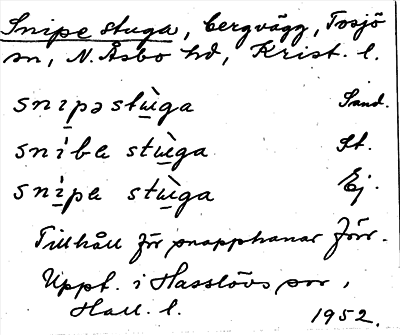 Snipe stuga, bergvägg, Tosjö
sn, N. Åsbo hd, Krist. l.
snı̱pəstu̱̇̀ga Sand.
sni̱ba stu̱̇̀ga St.
sni̱pa stu̱̇̀ga Ej.
Tillhåll för snapphanar förr.
Uppt. i Hasslövs sn,
Hall. l. 1952.